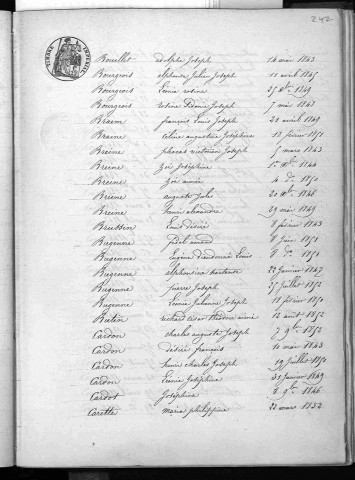 242
TIMBRE IMPERIAL
Bouillet adolphe Joseph 14 mai 1843
Bourgeois alphonse Julien Joseph 11 avril 1845
Bourgeois Léonie rosine 25 9bre 1849
Bourgeois rosine Sidonie Joseph 7 mai 1843
Braem françois Louis Joseph 20 avril 1849
Braine céline augustine Joséphine 18 février 1851
Breène phocas victorien Joseph 5 mars 1843
Breène Zoé Joséphine 1er 1844
Breène Zoé aimée 4 1850
Breène auguste Jules 20 1846
Breène henri alexandre 29 mai 1849
Brussin Louis désiré 8 février 1843
Bugenne fidel amand 8 Juin 1851
Bugenne Eugène Louis 8 1850
Bugenne alphonsine hortense 22 Janvier 1847
Bugenne pierre Joseph 25 Juillet 1852
Bugenne Léonie Julienne Joseph 18 février 1850
Butin richard théodore aimé 12 août 1852
Cardon charles auguste Joseph 7 9bre 1852
Cardon désiré françois 10 mai 1843
Cardon henri charles Joseph 19 Juillet 1850
Cardon Léonie Joséphine 31 Janvier 1849
Cardot Joséphine 8 9bre 1846
Carette marie philippine 22 mars 1852